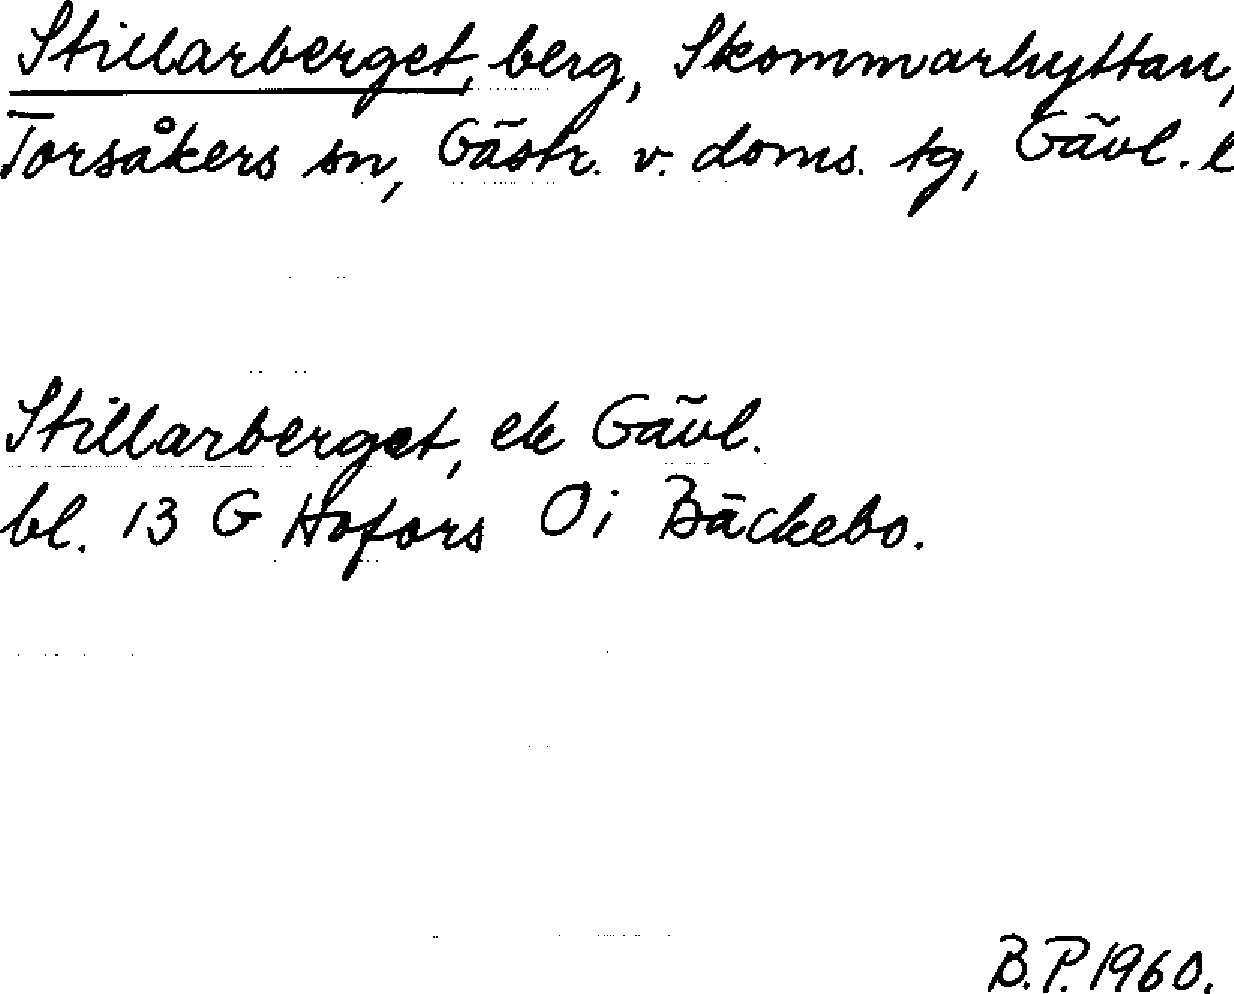 Stillarberget, berg, Skommarhyttan,
Torsåkers sn, Gästr. v. doms. tg, Gävl. l
Stillarberget, ek Gävl.
bl. 13 G Hofors 0i Bäckebo.
B.P. 1960.